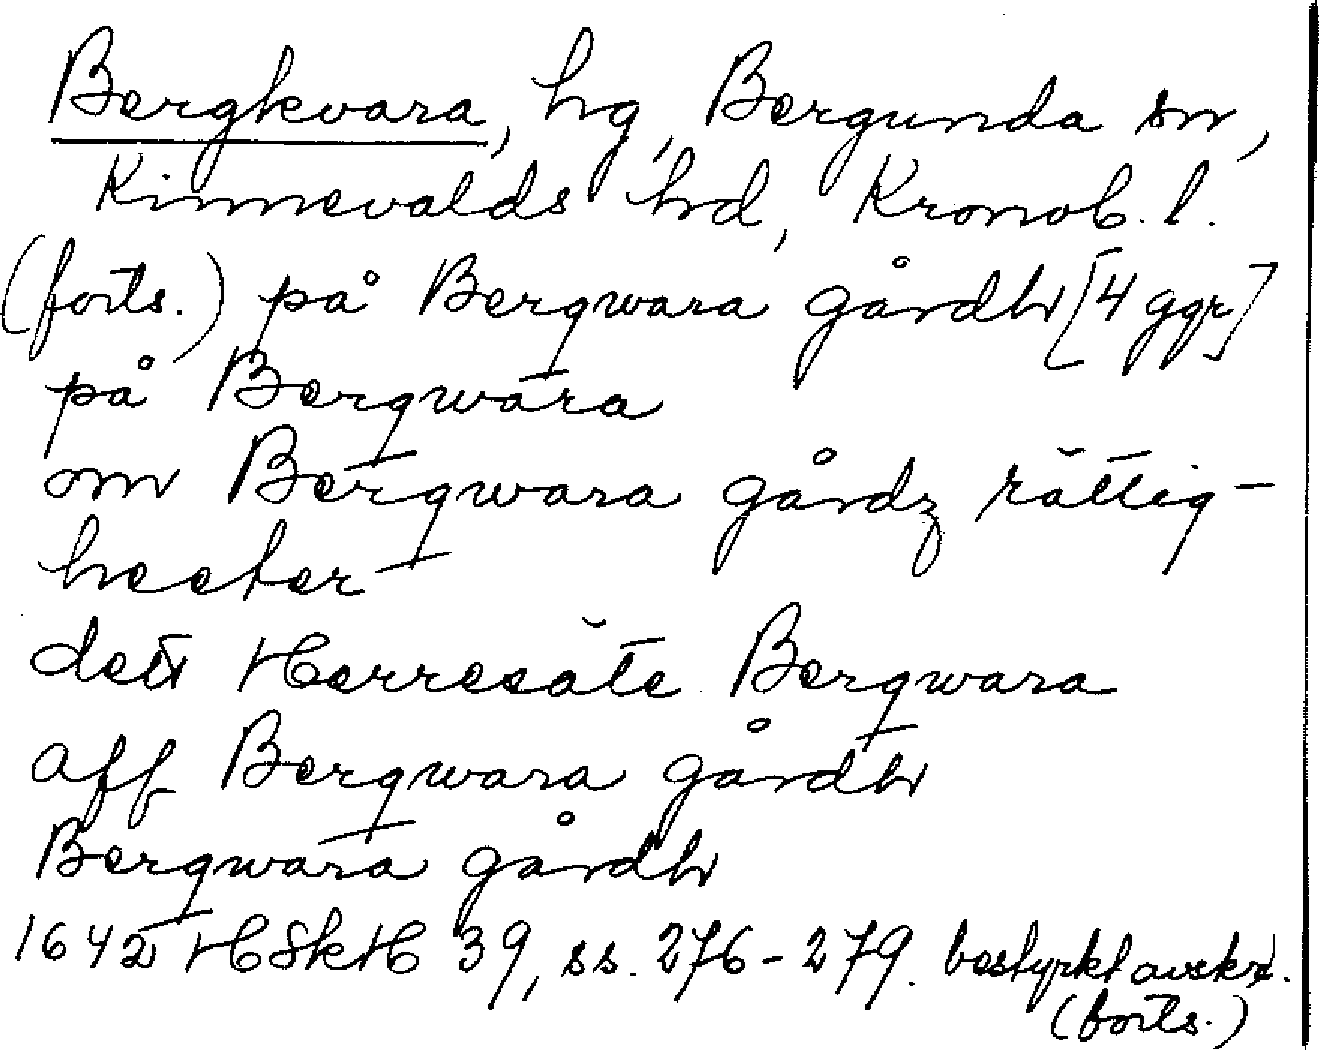 Bergkvara, hg, Bergunda sn,
Kinnevalds hd, Kronob. l.
(forts.) på Bergwara gårdh [4 ggr]
på Bergwara
om Bergwara gårdz rättig-
heeter
dett Herresäte Bergwara
aff Bergwara gårdh
Bergwara gårdh
1642 HSkH 39, ss. 276-279. bestyrkt avskr.
(forts.)